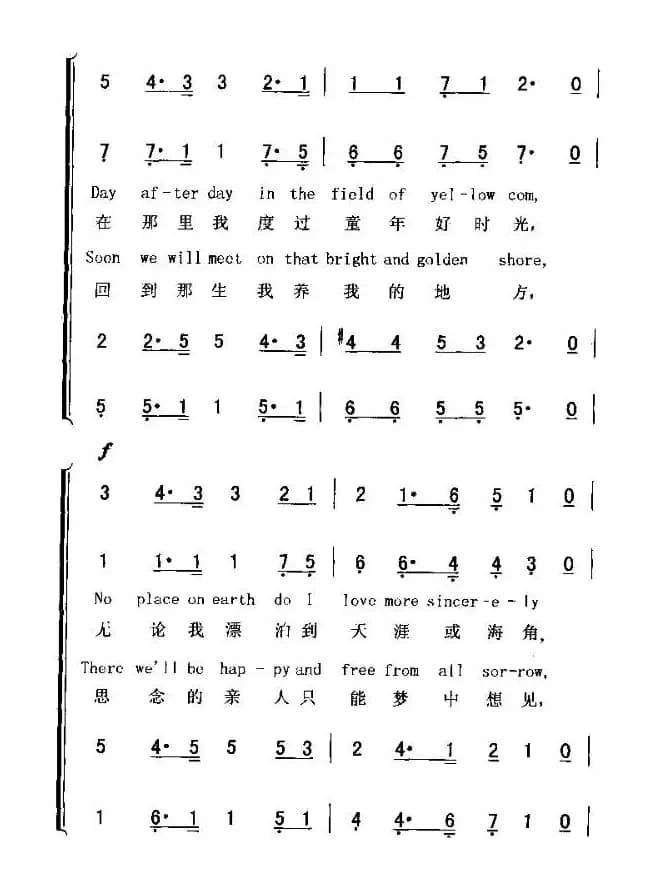 5 4· 3 3 2· 1 | 1 1 7 1 2· 0 |
7 7· 1 1 7· 5 | 6 6 7 5 7· 0 |
Day af-ter day in the field of yel-low com,
在 那 里 我 度 过 童 年 好 时 光,
Soon we will meet on that bright and golden shore,
回 到 那 生 我 养 我 的 地 方,
2 2· 5 5 4· 3 | #4 4 5 3 2· 0 |
5 5· 1 1 5· 1 | 6 6 5 5 5· 0 |
f
3 4· 3 3 2 1 | 2 1· 6 5 1 0 |
1 1· 1 1 7 5 | 6 6· 4 4 3 0 |
No place on earth do I love more sincer-e-ly
无 论 我 漂 泊 到 天 涯 或 海 角,
There we'll be hap-py and free from all sor-row,
思 念 的 亲 人 只 能 梦 中 想 见,
5 4· 5 5 5 3 | 2 4· 1 2 1 0 |
1 6· 1 1 5 1 | 4 4· 6 7 1 0 |